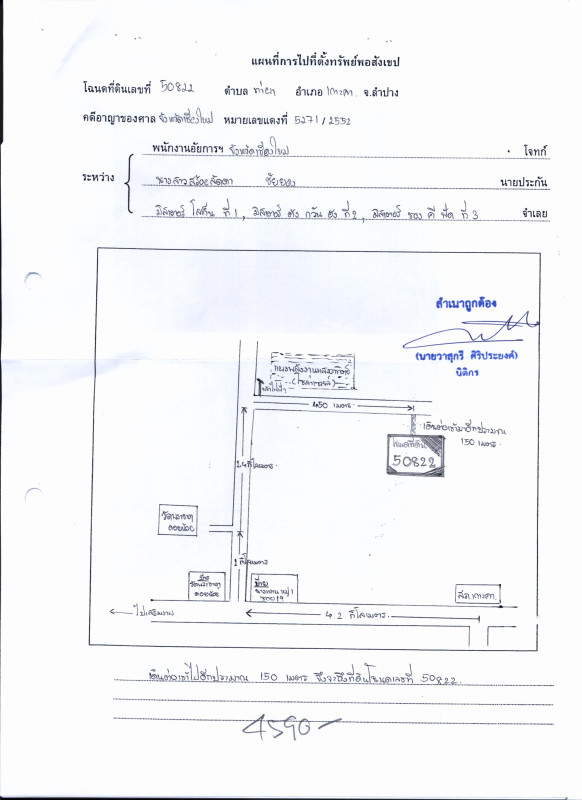 แผนที่การไปที่ตั้งทรัพย์พอสังเขป
โฉนดที่ดินเลขที่ 50822 ตำบล ท่าผา อำเภอ เกาะคา จ.ลำปาง
คดีอาญาของศาล จังหวัดเชียงใหม่ หมายเลขแดงที่ 5271/2552
พนักงานอัยการฯ จังหวัดเชียงใหม่ โจทก์
ระหว่าง นางสาวสร้อยลัดดา นายประกัน
มิสเตอร์ ที่ 1, มิสเตอร์ ที่ 2, มิสเตอร์ ที่ 3 จำเลย
สำเนาถูกต้อง
(นายวาสุกรี ศิริประยงค์)
นิติกร
แผงพลังงานแสงอาทิตย์
(โซล่าเซลล์)
450 เมตร
เดินต่อเข้าไปอีกประมาณ
150 เมตร
โฉนดที่ดิน
50822
2.4 กิโลเมตร
1 กิโลเมตร
วัดพระธาตุ
ดอยน้อย
ป้าย
วัดพระธาตุ
ดอยน้อย
ป้าย
หมู่ 1
ซอย 19
สภ.เกาะคา
ไปเสริมงาม
4.2 กิโลเมตร
เดินต่อเข้าไปอีกประมาณ 150 เมตร จึงจะถึงที่ดินโฉนดเลขที่ 50822
4590-